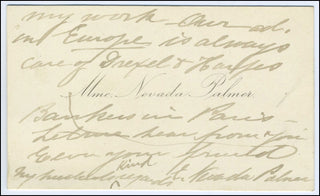 my work Our ad.
in Europe is always
care of Drexel & Harjes
Mme. Nevada Palmer.
Bankers in Paris —
Let me hear from you
Ever your friend
Kind
my husband's regards Nevada Palmer